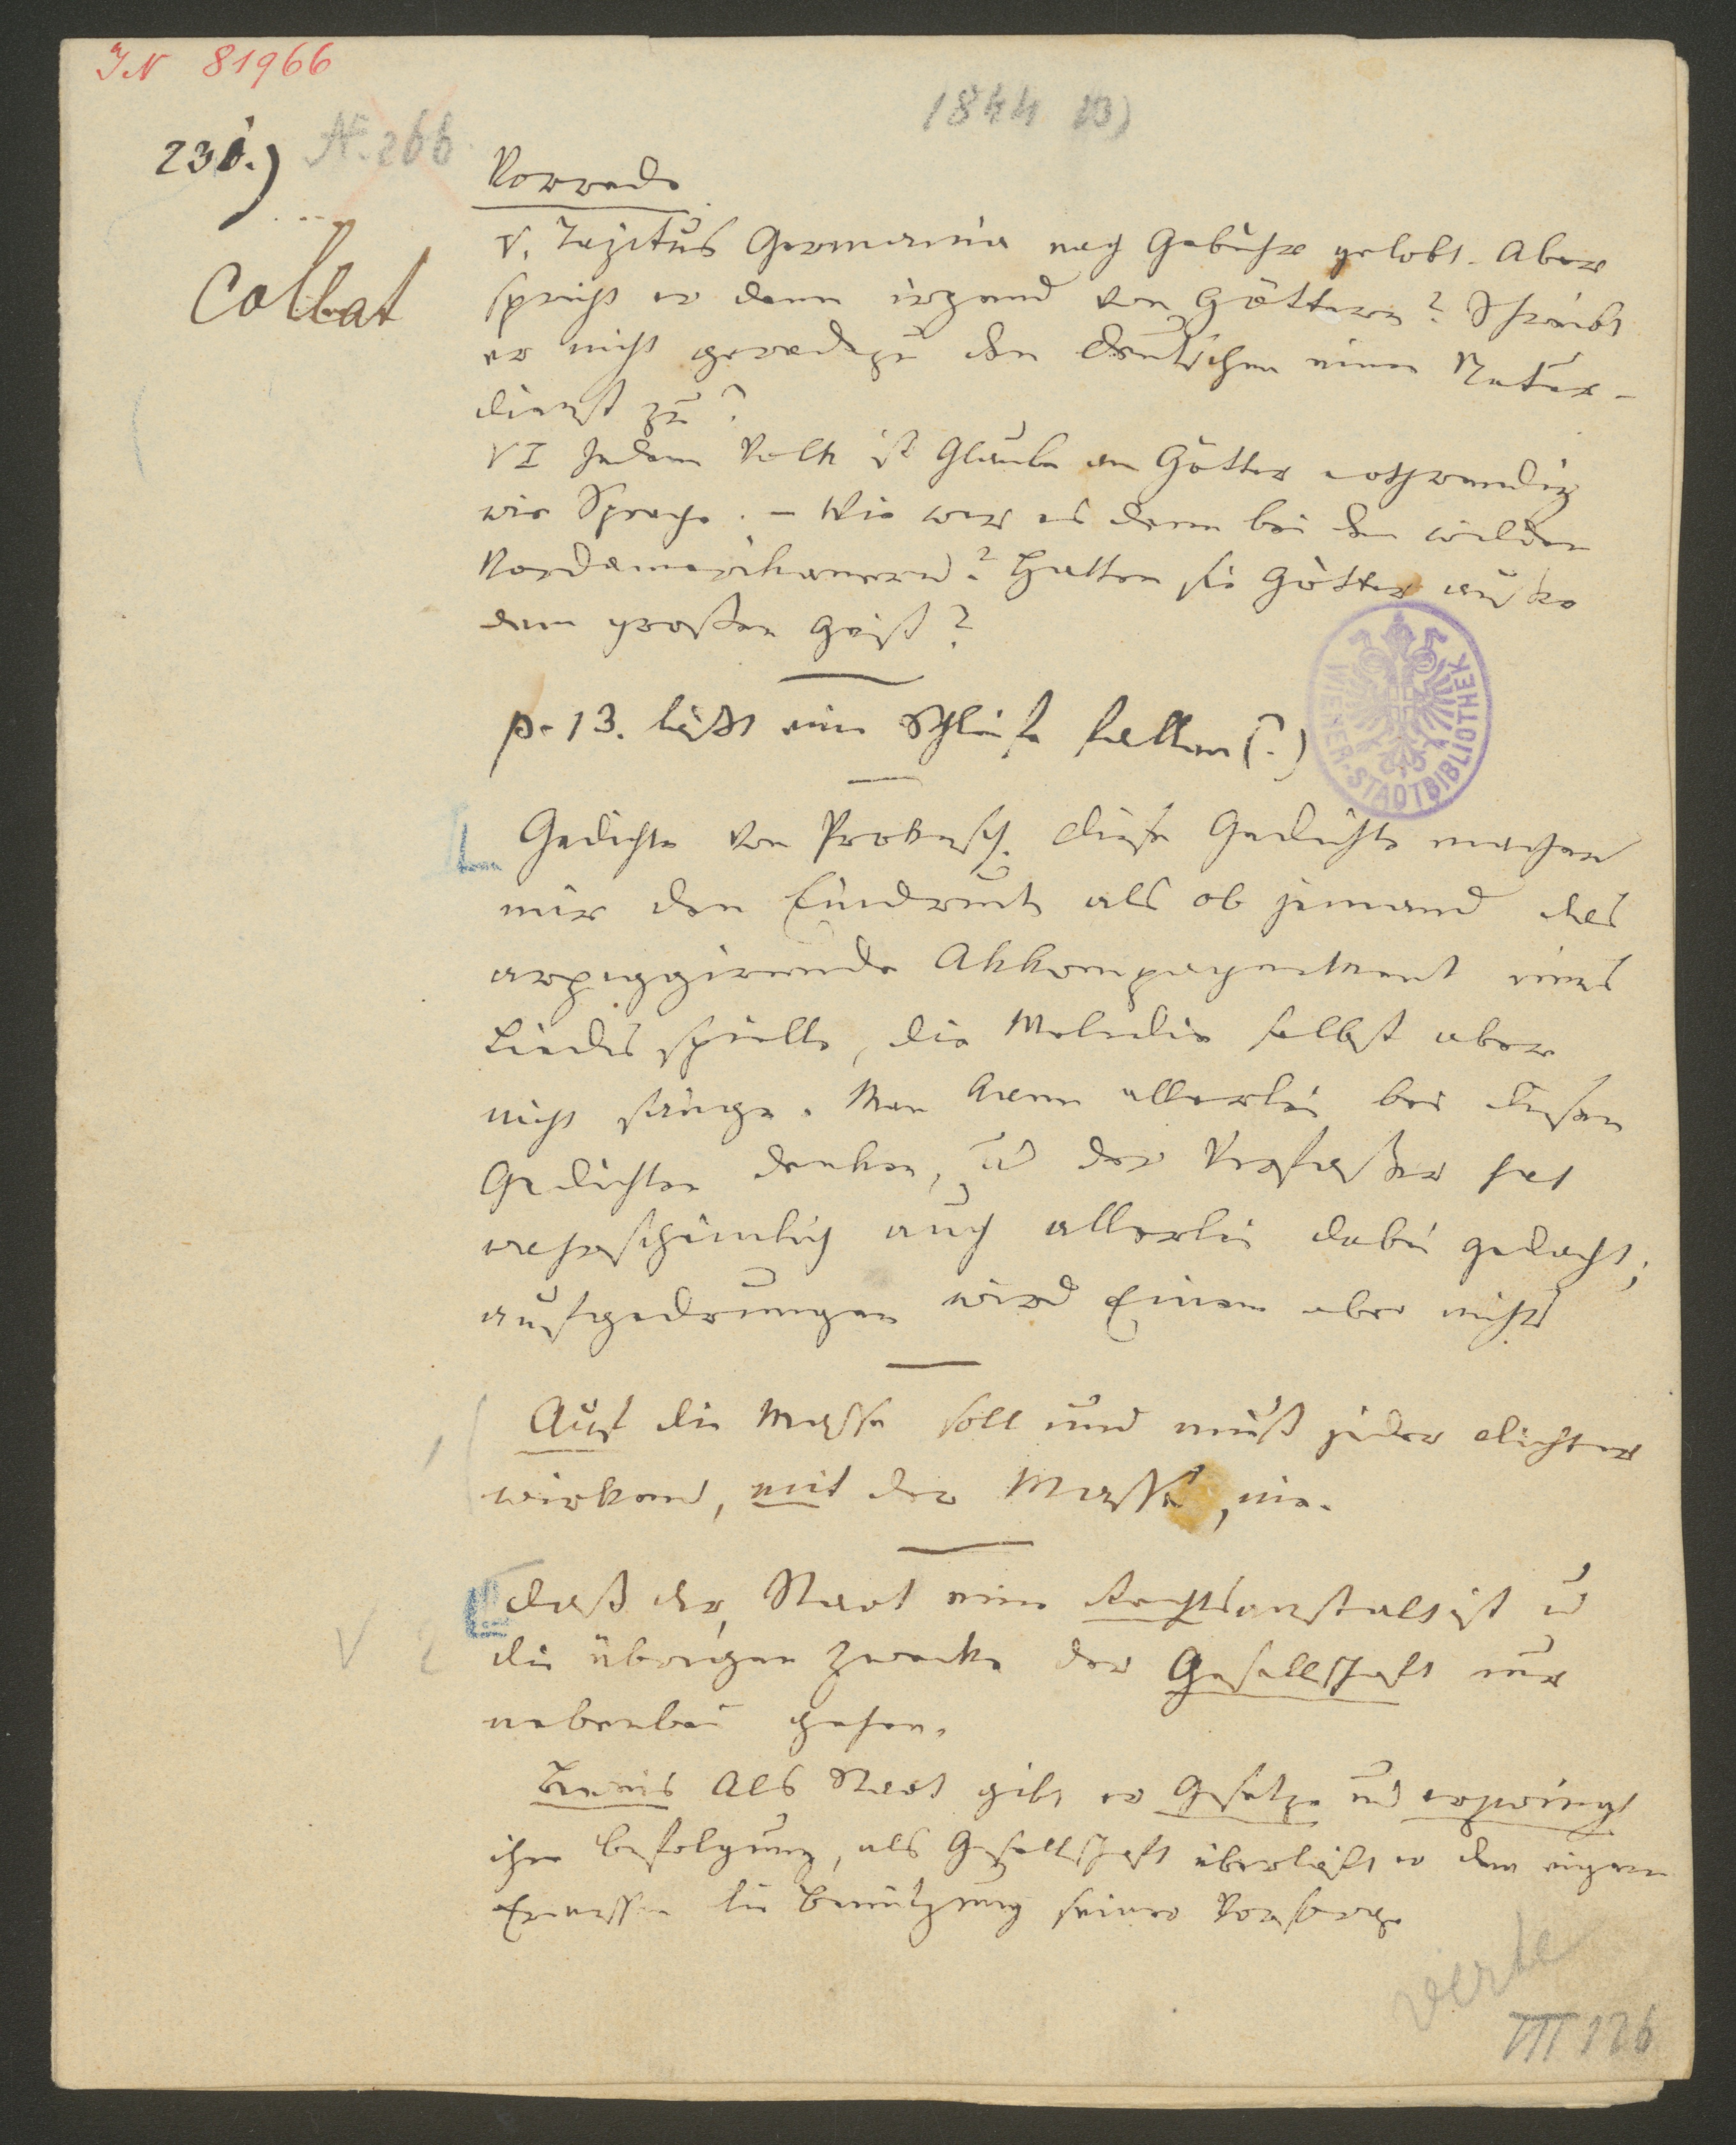 IN 81966
1844 13)
230.) N. 266
Vorrede
Collat
V. Tazitus Germania nach Gebühr gelobt. Aber
spricht er denn irgend von Göttern? Schreibt
er nicht geradezu den Deutschen einen Natur-
dienst zu?
VI Jedem Volk ist Glaube an Götter nothwendig
wie Sprache. – Wie war es denn bei den wilden
Nordamerikanern? Hatten sie Götter außer
dem großen Geist?
p. 13. läßt eine Schleife fallen (?)
Gedichte von Prokesch. Diese Gedichte machen
mir den Eindruck als ob jemand das
arpeggirende Akkompagnement eines
Liedes spielte, die Melodie selbst aber
nicht sänge. Man kann allerlei bei diesen
Gedichten denken, u der Verfasser hat
wahrscheinlich auch allerlei dabei gedacht;
aufgedrungen wird Einem aber nichts
Auf die Masse soll und muß jeder Dichter
wirken, mit der Masse, nie.
Daß der Staat eine Rechtsanstalt ist u
V 2 die übrigen Zwecke der Gesellschaft nur
nebenbei gehen.
Beweis Als Staat gibt er Gesetze und erzwingt
ihre Befolgung, als Gesellschaft überläßt er dem eigenen
Ermessen die Benützung seiner Vorsorge
verte
III 126
WIENER-STADTBIBLIOTHEK